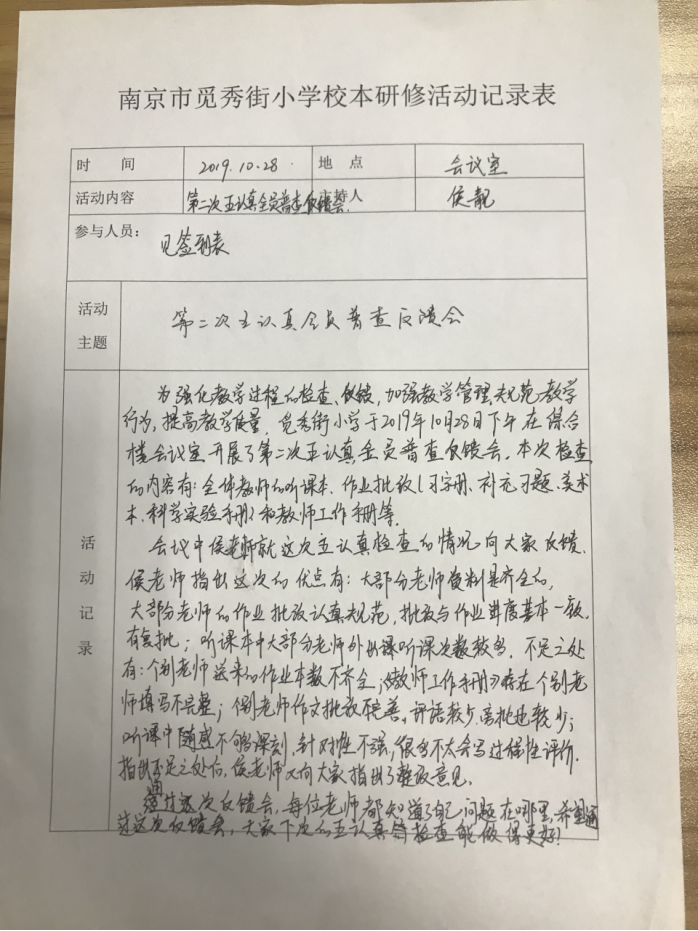 南京市觅秀街小学校本研修活动记录表
时 间 2019.10.28. 地 点 会议室
活动内容 第二次五认真全员普查反馈会 主持人 侯靓
参与人员：
见签到表
活动主题 第二次五认真全员普查反馈会
活动记录
为强化教学过程的检查、反馈，加强教学管理，规范教学
行为，提高教学质量，觅秀街小学于2019年10月28日下午在综合
楼会议室开展了第二次五认真全员普查反馈会。本次检查
的内容有：全体教师的听课本、作业批改（习字册、补充习题、美术
本、科学实验手册）和教师工作手册等。
会议中侯老师就这次五认真检查的情况向大家反馈。
侯老师指出这次的优点有：大部分老师资料是齐全的，
大部分老师的作业批改认真规范，批改与作业进度基本一致，
有复批；听课本中大部分老师外出课听课次数较多。不足之处
有：个别老师送来的作业本数不齐全；《教师工作手册》存在个别老
师填写不完整；个别老师作文批改不完善，评语较少，眉批也较少；
听课中随感不够深刻，针对性不强，很多不太会写过程性评价。
指出不足之处后，侯老师又向大家指出了整改意见。
通过这次反馈会，每位老师都知道了自己问题在哪里，希望通
过这次反馈会，大家下次的五认真等检查能做得更好！